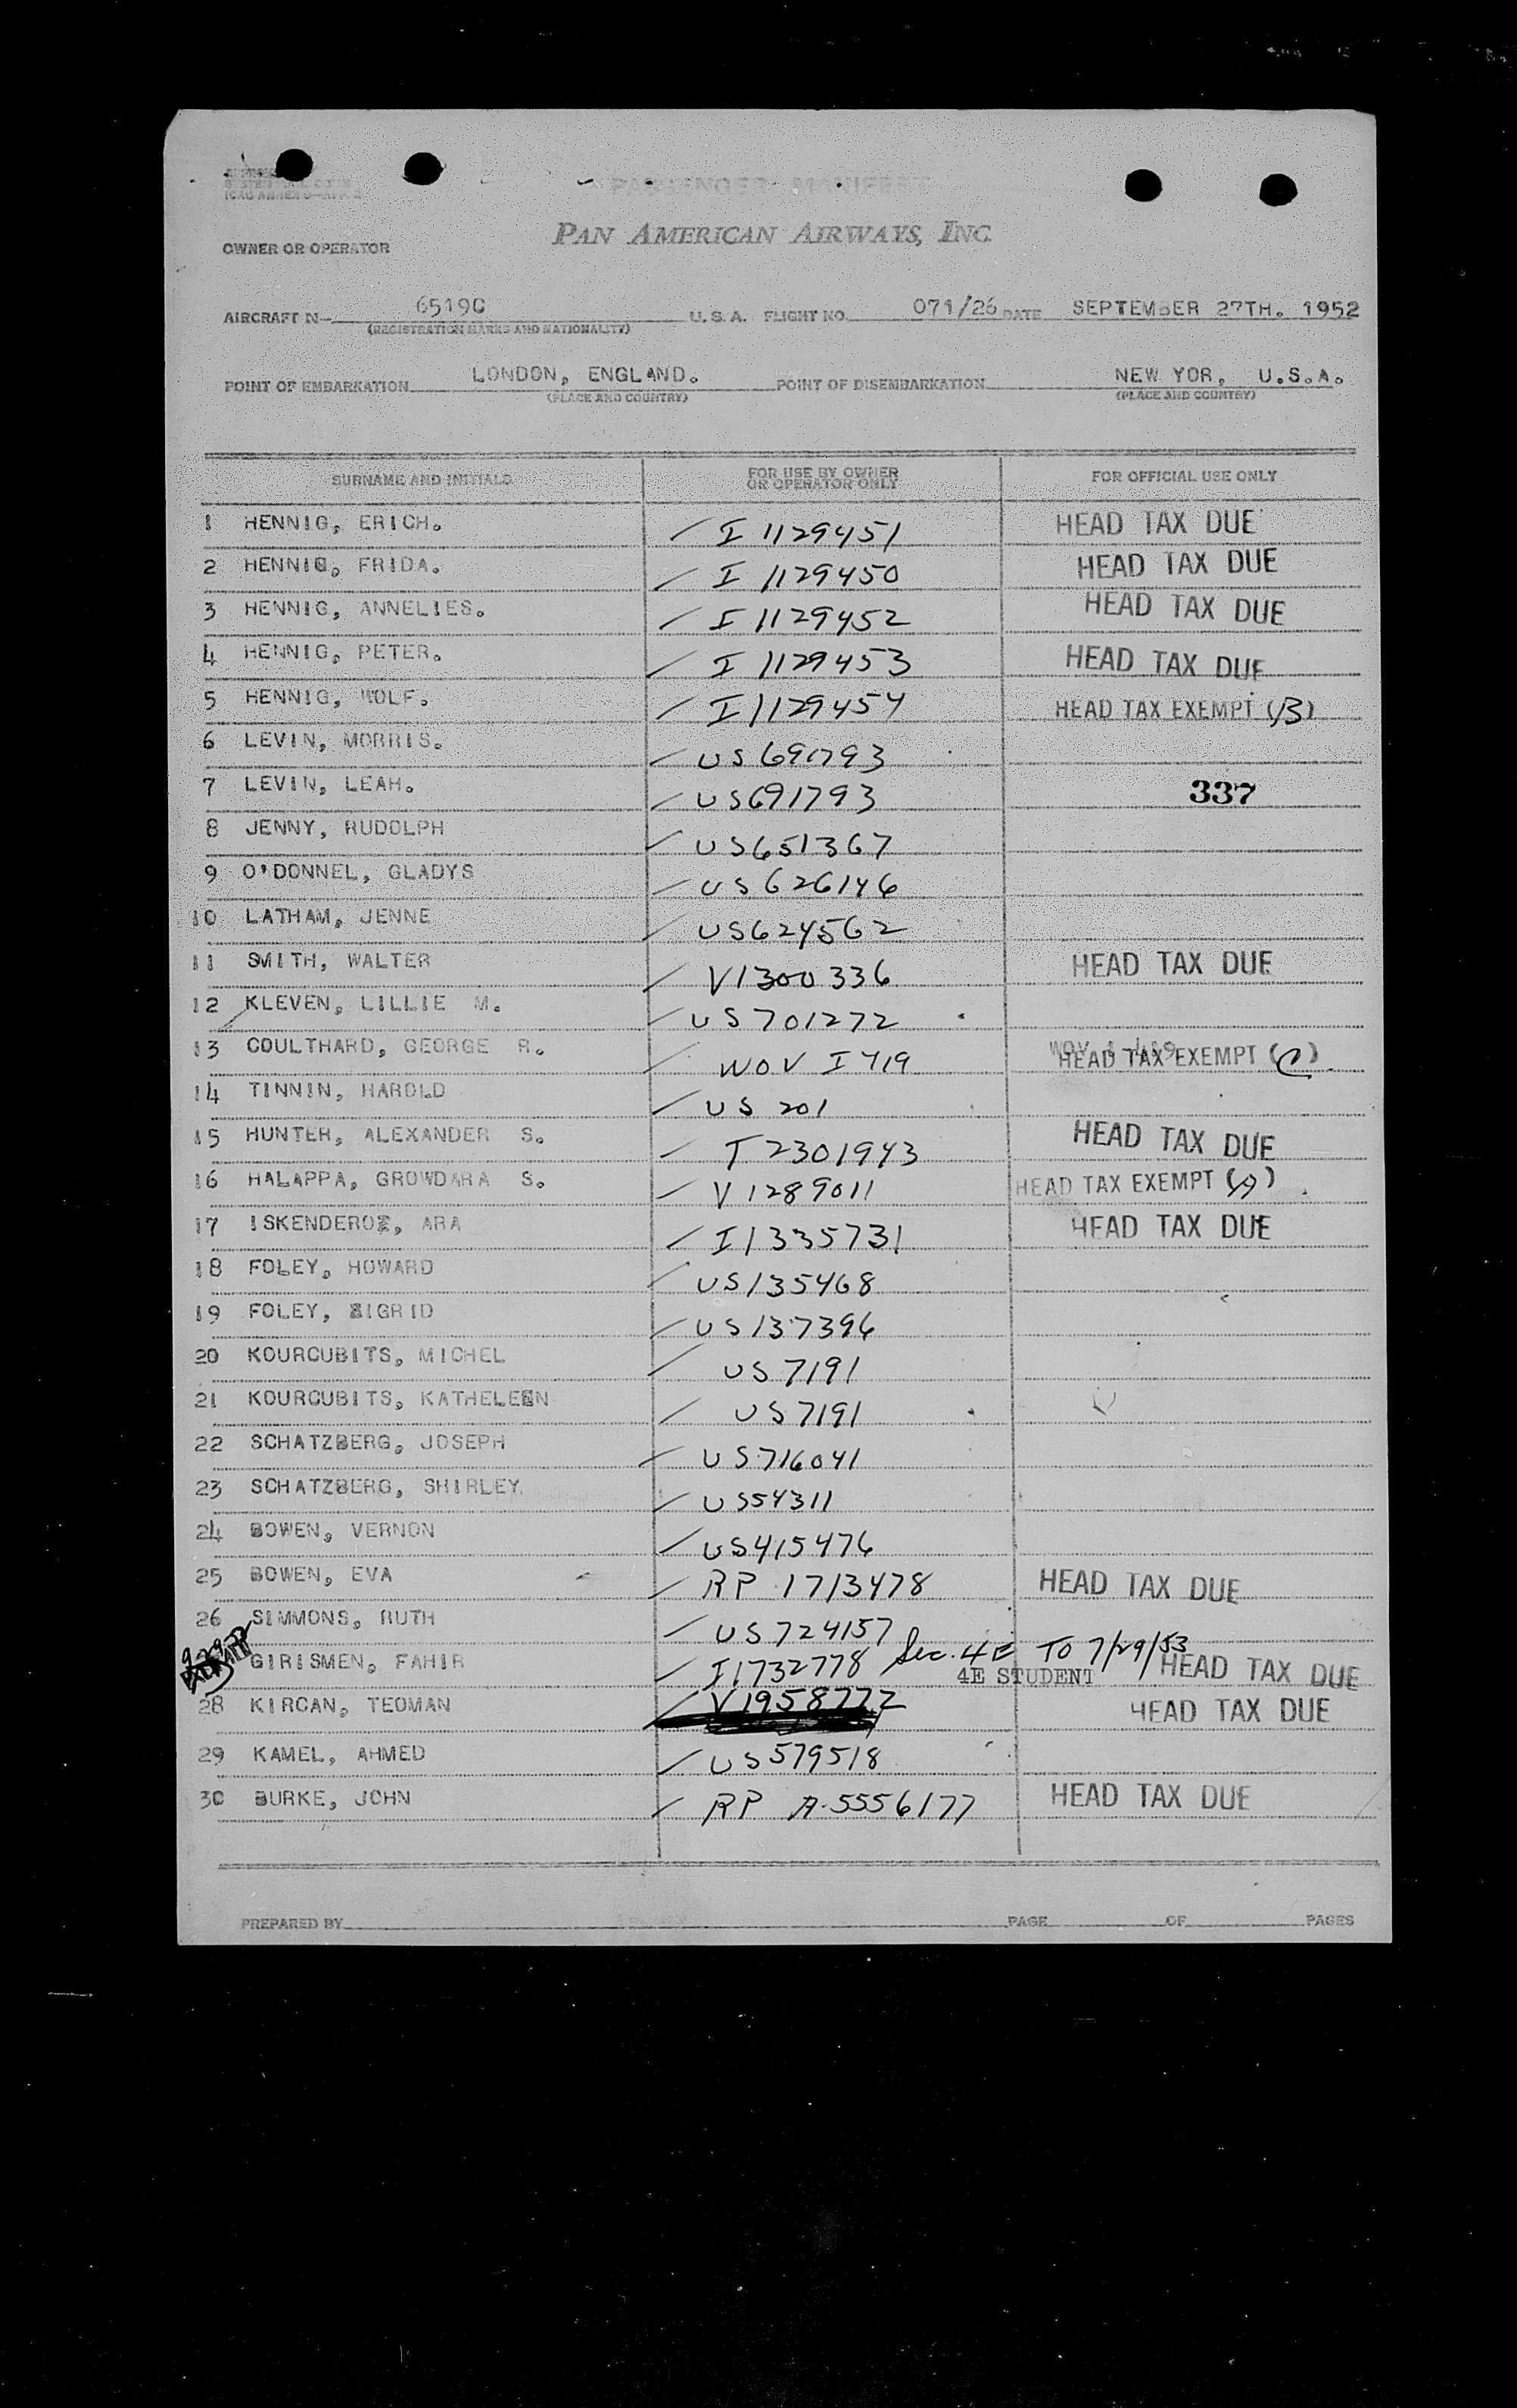 PASSENGER MANIFEST
ICAO ANNEX 9
PAN AMERICAN AIRWAYS, INC.
OWNER OR OPERATOR
AIRCRAFT N— 6519C U.S.A. FLIGHT NO. 071/26 DATE SEPTEMBER 27TH. 1952
(REGISTRATION MARKS AND NATIONALITY)
POINT OF EMBARKATION LONDON, ENGLAND. POINT OF DISEMBARKATION NEW YOR, U.S.A.
(PLACE AND COUNTRY) (PLACE AND COUNTRY)
SURNAME AND INITIALS FOR USE BY OWNER OR OPERATOR ONLY FOR OFFICIAL USE ONLY
1 HENNIG, ERICH. I 1129451 HEAD TAX DUE
2 HENNIG, FRIDA. I 1129450 HEAD TAX DUE
3 HENNIG, ANNELIES. I 1129452 HEAD TAX DUE
4 HENNIG, PETER. I 1129453 HEAD TAX DUE
5 HENNIG, WOLF. I 1129454 HEAD TAX EXEMPT (B)
6 LEVIN, MORRIS. US 691793
7 LEVIN, LEAH. US691793 337
8 JENNY, RUDOLPH US651367
9 O'DONNEL, GLADYS US 626146
10 LATHAM, JENNE US624562
11 SMITH, WALTER V1300336 HEAD TAX DUE
12 KLEVEN, LILLIE M. US701272
13 COULTHARD, GEORGE R. WOV I 419 HEAD TAX EXEMPT (C)
14 TINNIN, HAROLD US 201
15 HUNTER, ALEXANDER S. T 2301943 HEAD TAX DUE
16 HALAPPA, GROWDARA S. V 1289011 HEAD TAX EXEMPT (A)
17 ISKENDEROZ, ARA I1335731 HEAD TAX DUE
18 FOLEY, HOWARD US135468
19 FOLEY, SIGRID US137396
20 KOURCUBITS, MICHEL US 7191
21 KOURCUBITS, KATHELEEN US 7191
22 SCHATZBERG, JOSEPH US716041
23 SCHATZBERG, SHIRLEY. US54311
24 BOWEN, VERNON US415476
25 BOWEN, EVA RP 1713478 HEAD TAX DUE
26 SIMMONS, RUTH US724157
GIRISMEN, FAHIR I1732778 Sec. 4E TO 7/29/53 4E STUDENT HEAD TAX DUE
28 KIRCAN, TEOMAN V1958772 HEAD TAX DUE
29 KAMEL, AHMED US579518
30 BURKE, JOHN RP A-5556177 HEAD TAX DUE
PREPARED BY PAGE OF PAGES